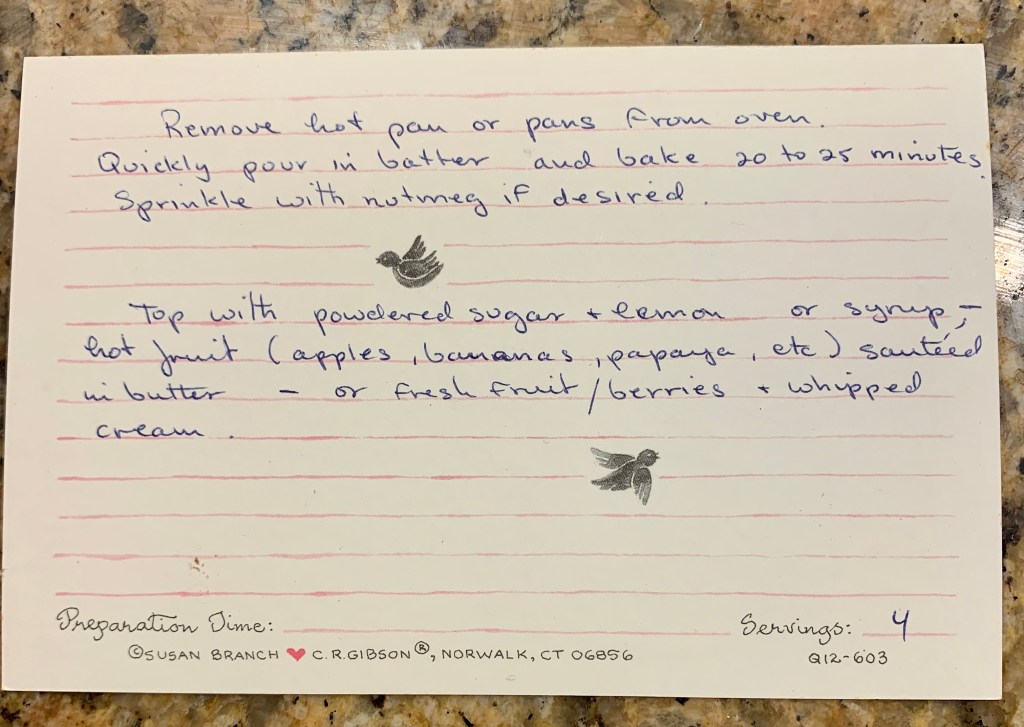 Remove hot pan or pans from oven.
Quickly pour in batter and bake 20 to 25 minutes.
Sprinkle with nutmeg if desired.
Top with powdered sugar + lemon or syrup, -
hot fruit (apples, bananas, papaya, etc) sautéed
in butter - or fresh fruit/berries + whipped
cream.
Preparation Time:
Servings: 4
©SUSAN BRANCH ♥ C.R.GIBSON®, NORWALK, CT 06856
Q12-603